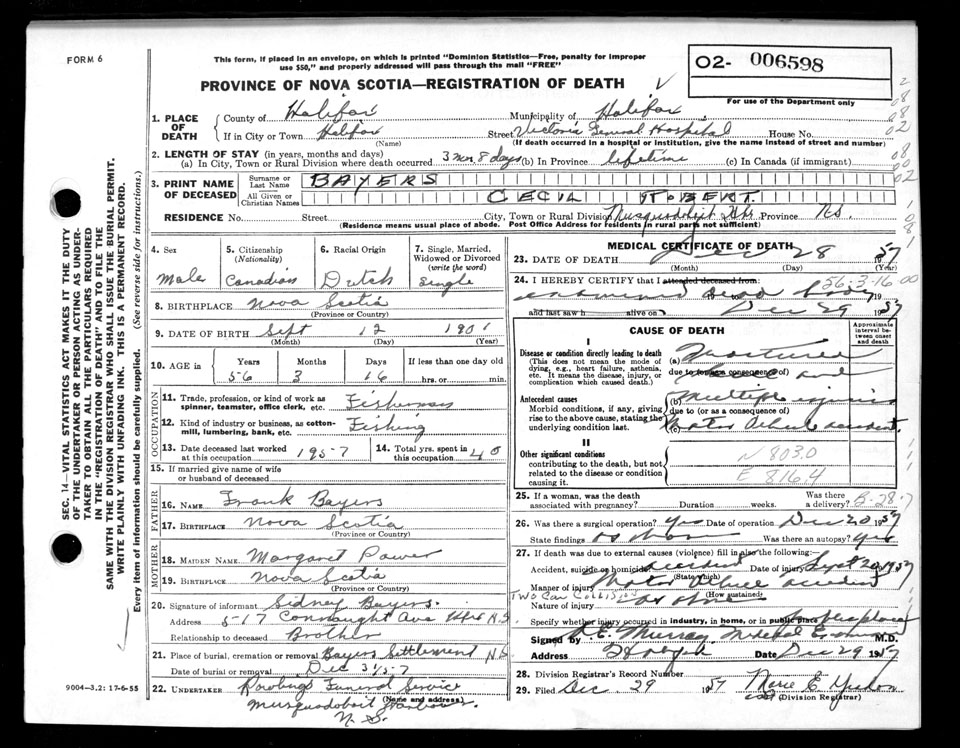 FORM 6
This form, if placed in an envelope, on which is printed "Dominion Statistics—Free, penalty for improper
use $50," and properly addressed will pass through the mail "FREE"
O2- 006598
PROVINCE OF NOVA SCOTIA—REGISTRATION OF DEATH
For use of the Department only
1. PLACE OF DEATH
County of Halifax Municipality of Halifax
If in City or Town Halifax Street Victoria General Hospital House No.
(Name) (If death occurred in a hospital or institution, give the name instead of street and number)
2. LENGTH OF STAY (in years, months and days)
(a) In City, Town or Rural Division where death occurred 3 mos 8 days (b) In Province lifetime (c) In Canada (if immigrant)
3. PRINT NAME OF DECEASED
Surname or Last Name BAYERS
All Given or Christian Names CECIL ROBERT
RESIDENCE No. Street City, Town or Rural Division Musquodoboit Hbr Province N.S.
(Residence means usual place of abode. Post Office Address for residents in rural parts not sufficient)
4. Sex Male
5. Citizenship (Nationality) Canadian
6. Racial Origin Dutch
7. Single, Married, Widowed or Divorced (write the word) Single
8. BIRTHPLACE Nova Scotia
(Province or Country)
9. DATE OF BIRTH Sept 12 1901
(Month) (Day) (Year)
10. AGE in Years Months Days If less than one day old
56 3 16 hrs. or min.
OCCUPATION
11. Trade, profession, or kind of work as spinner, teamster, office clerk, etc. Fisherman
12. Kind of industry or business, as cotton-mill, lumbering, bank, etc. Fishing
13. Date deceased last worked at this occupation 1957
14. Total yrs. spent in this occupation 40
15. If married give name of wife or husband of deceased
FATHER
16. NAME Frank Bayers
17. BIRTHPLACE Nova Scotia
(Province or Country)
MOTHER
18. MAIDEN NAME Margaret Power
19. BIRTHPLACE Nova Scotia
(Province or Country)
20. Signature of informant Sidney Bayers.
Address Connaught Ave Hfx N.S.
Relationship to deceased Brother
21. Place of burial, cremation or removal Bayers Settlement N.S.
Date of burial or removal Dec 31/57
22. UNDERTAKER Funeral Service
(Name and address)
Musquodoboit Harbour
N. S.
MEDICAL CERTIFICATE OF DEATH
23. DATE OF DEATH Dec 28 1957
(Month) (Day) (Year)
24. I HEREBY CERTIFY that I attended deceased from: 56-3-16
examined dead body 19
and last saw h alive on Dec 29 1957
CAUSE OF DEATH
Approximate interval between onset and death
I
Disease or condition directly leading to death
(This does not mean the mode of dying, e.g., heart failure, asthenia, etc. It means the disease, injury, or complication which caused death.)
(a) Fractured
due to (or as a consequence of) and
Antecedent causes
Morbid conditions, if any, giving rise to the above cause, stating the underlying condition last.
(b) Multiple injuries
due to (or as a consequence of)
(c) Motor Vehicle accident.
II
Other significant conditions contributing to the death, but not related to the disease or condition causing it.
N 803.0
E 816.4
25. If a woman, was the death associated with pregnancy? Duration weeks. Was there a delivery? B-28-7
26. Was there a surgical operation? Yes Date of operation Dec 20 1957
State findings as above Was there an autopsy? Yes
27. If death was due to external causes (violence) fill in also the following:—
Accident, suicide or homicide accident Date of injury Sept 20 1957
(State which)
Manner of injury Motor Vehicle accident
TWO CAR COLLISION (How sustained)
Nature of injury as above
Specify whether injury occurred in industry, in home, or in public place public place
Signed by Murray Medical Examiner M.D.
Address Halifax Date Dec 29 1957
28. Division Registrar's Record Number
29. Filed Dec. 29 1957 Marie E.
(Division Registrar)
SEC. 14—VITAL STATISTICS ACT MAKES IT THE DUTY
OF THE UNDERTAKER OR PERSON ACTING AS UNDER-
TAKER TO OBTAIN ALL THE PARTICULARS REQUIRED
IN THE "REGISTRATION OF DEATH" AND TO FILE THE
SAME WITH THE DIVISION REGISTRAR WHO SHALL ISSUE THE BURIAL PERMIT.
WRITE PLAINLY WITH UNFADING INK. THIS IS A PERMANENT RECORD.
Every item of information should be carefully supplied. (See reverse side for instructions.)
9004—3.2: 17-6-55